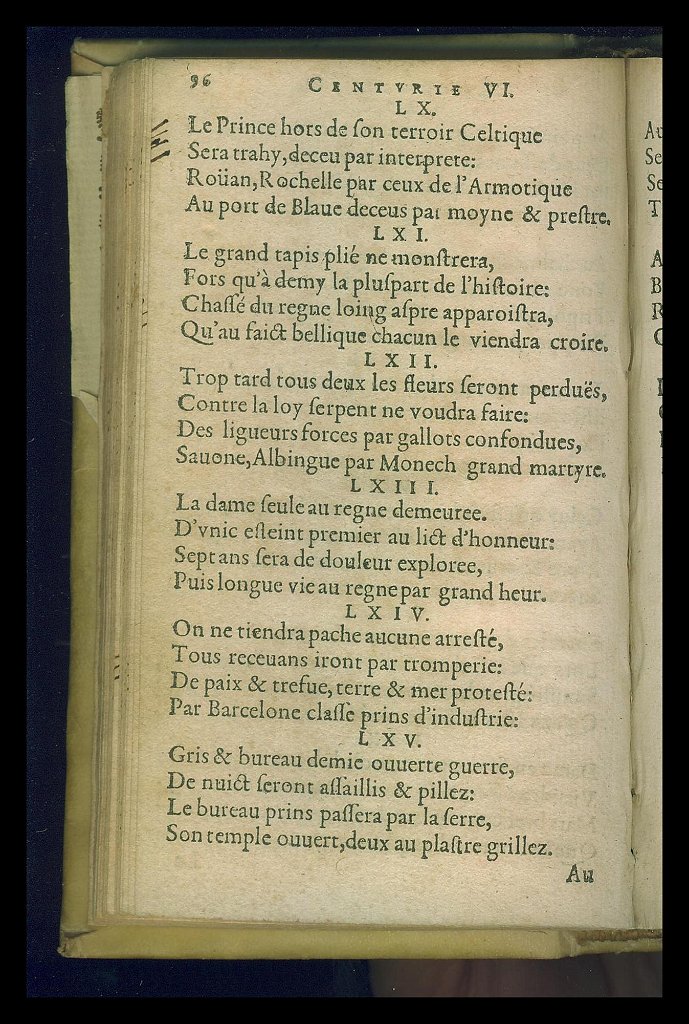 96 CENTVRIE VI.
LX.
Le Prince hors de ſon terroir Celtique
Sera trahy, deceu par interprete:
Roüan, Rochelle par ceux de l'Armotique
Au port de Blaue deceus par moyne & preſtre.
LXI.
Le grand tapis plié ne monſtrera,
Fors qu'à demy la pluſpart de l'hiſtoire:
Chaſſé du regne loing aſpre apparoiſtra,
Qu'au faict bellique chacun le viendra croire.
LXII.
Trop tard tous deux les fleurs ſeront perduës,
Contre la loy ſerpent ne voudra faire:
Des ligueurs forces par gallots confondues,
Sauone, Albingue par Monech grand martyre.
LXIII.
La dame ſeule au regne demeuree.
D'vnic eſteint premier au lict d'honneur:
Sept ans ſera de douleur exploree,
Puis longue vie au regne par grand heur.
LXIV.
On ne tiendra pache aucune arreſté,
Tous receuans iront par tromperie:
De paix & trefue, terre & mer proteſté:
Par Barcelone claſſe prins d'induſtrie:
LXV.
Gris & bureau demie ouuerte guerre,
De nuict ſeront aſſaillis & pillez:
Le bureau prins paſſera par la ſerre,
Son temple ouuert, deux au plaſtre grillez.
Au
Au
Se
Se
T
A
B
R